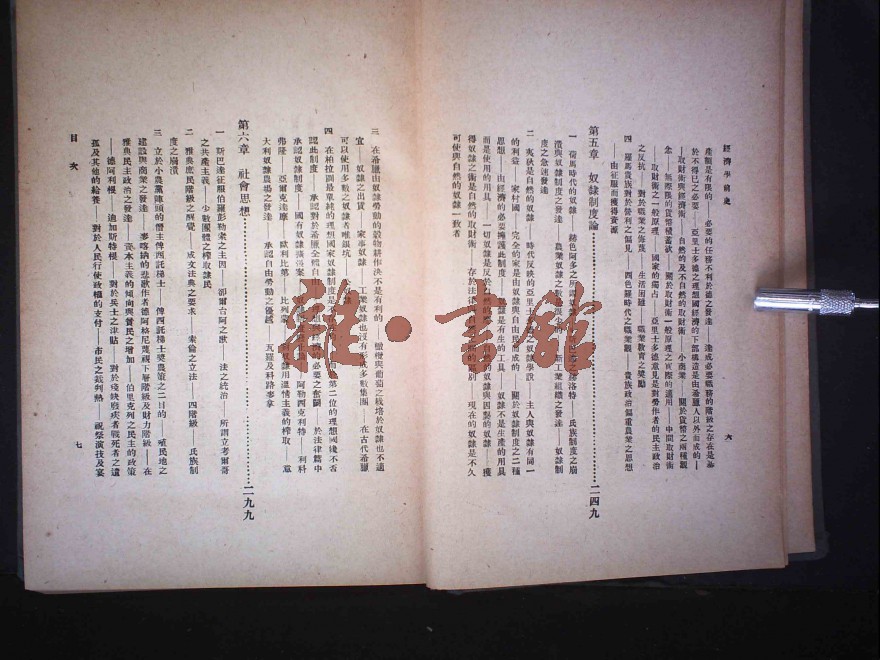 經濟學前史
六
產額是有限的——必要的任務不利於德之發達——達成必要職務的階級之存在是基
於不得已之必要——亞里士多德之理想國經濟的下部構造是由希臘人以外而成的——
——取財術與經濟術——自然的及不自然的取財術——小商業——關於貨幣之兩種觀
念——無際限的貨幣積蓄慾——關於取財術一般原理之實際的適用——中間取財術
——取財術之一般原理——國家的獨占——亞里士多德意見是對勞作者的民主政治
之反抗——對於職業之侮蔑——生活困難——職業教育之獎勵
四 羅馬貴族對於營利之偏見——西色羅時代之職業觀——貴族政治偏重農業之思想
——由征服而獲得資源
第五章 奴隸制度論 二四九
一 荷馬時代的奴隸——赫色阿多之所謂 洛特——氏族制度之崩
潰與奴隸制度之發達——農業奴隸之 新工業組織之發達——奴隸
度之急速發達
二 夷狄是自然的奴隸——時代反映的亞里士 奴隸學說——主人與奴隸有同一
的利益——家村國——完全的家是由奴隸與自由民而成的——關於奴隸制度之二種
思想——由經濟的必要擁護此制度——奴隸是有生的工具——奴隸不是生產的用具
而是使用的用具——一切奴隸是反於自然的 的奴隸與因襲的奴隸——獲
得奴隸之術——存於法律 的區別——現在的奴隸是不久
可使與自然的奴隸一致者
三 在希臘由奴隸勞動的穀物耕作決不是有利的——橄欖與葡萄之栽培於奴隸也不適
宜——奴隸之出貨——家事奴隸——工業奴隸也沒有形成多數集團——在古代希臘
可以使用多數之奴隸者唯銀坑——奴隸
四 在柏拉圖最單純的理想國家奴隸制度是 第二位的理想國後不否
認此制度——承認對於希臘全體自由 的必要之奮鬬——於法律篇中
承認奴隸制度——國有奴隸擴張案——奴隸 阿勒西克利特——利科
弗隆——亞爾克達摩——歐利比第——比列 奴隸用溫情主義的榨取——意
大利奴隸農場之發達——承認自由勞動之優越——瓦羅及科路麥拿
第六章 社會思想 二九九
一 斯巴達征服伯羅彭勒梭之主因——卻爾古阿之歌——法之統治——所謂立考爾哥
之共產主義——少數團體之榨取隸民
二 雅典庶民階級之醒覺——成文法典之要求——索倫之立法——四階級——氏族制
度之崩潰
三 立於小農黨陣頭的僭主俾西託梯士——俾西託梯士獎農策之二目的——殖民地之
建設與商業之發達——麥喀納的悲歌作者德阿格尼蔑視下層階級及財力階級——在
雅典民主政治之發達——資本主義的傾向與曾民之增加——伯里克列之民主的政策
——德阿利根——迪加斯特根——對於兵士之津貼——對於殘缺廢疾者戰死者之遺
孤及其他的給養——對於人民行使政權的支付——市民之裁判熱——祝祭演技及宴
目次
七
雜·書館